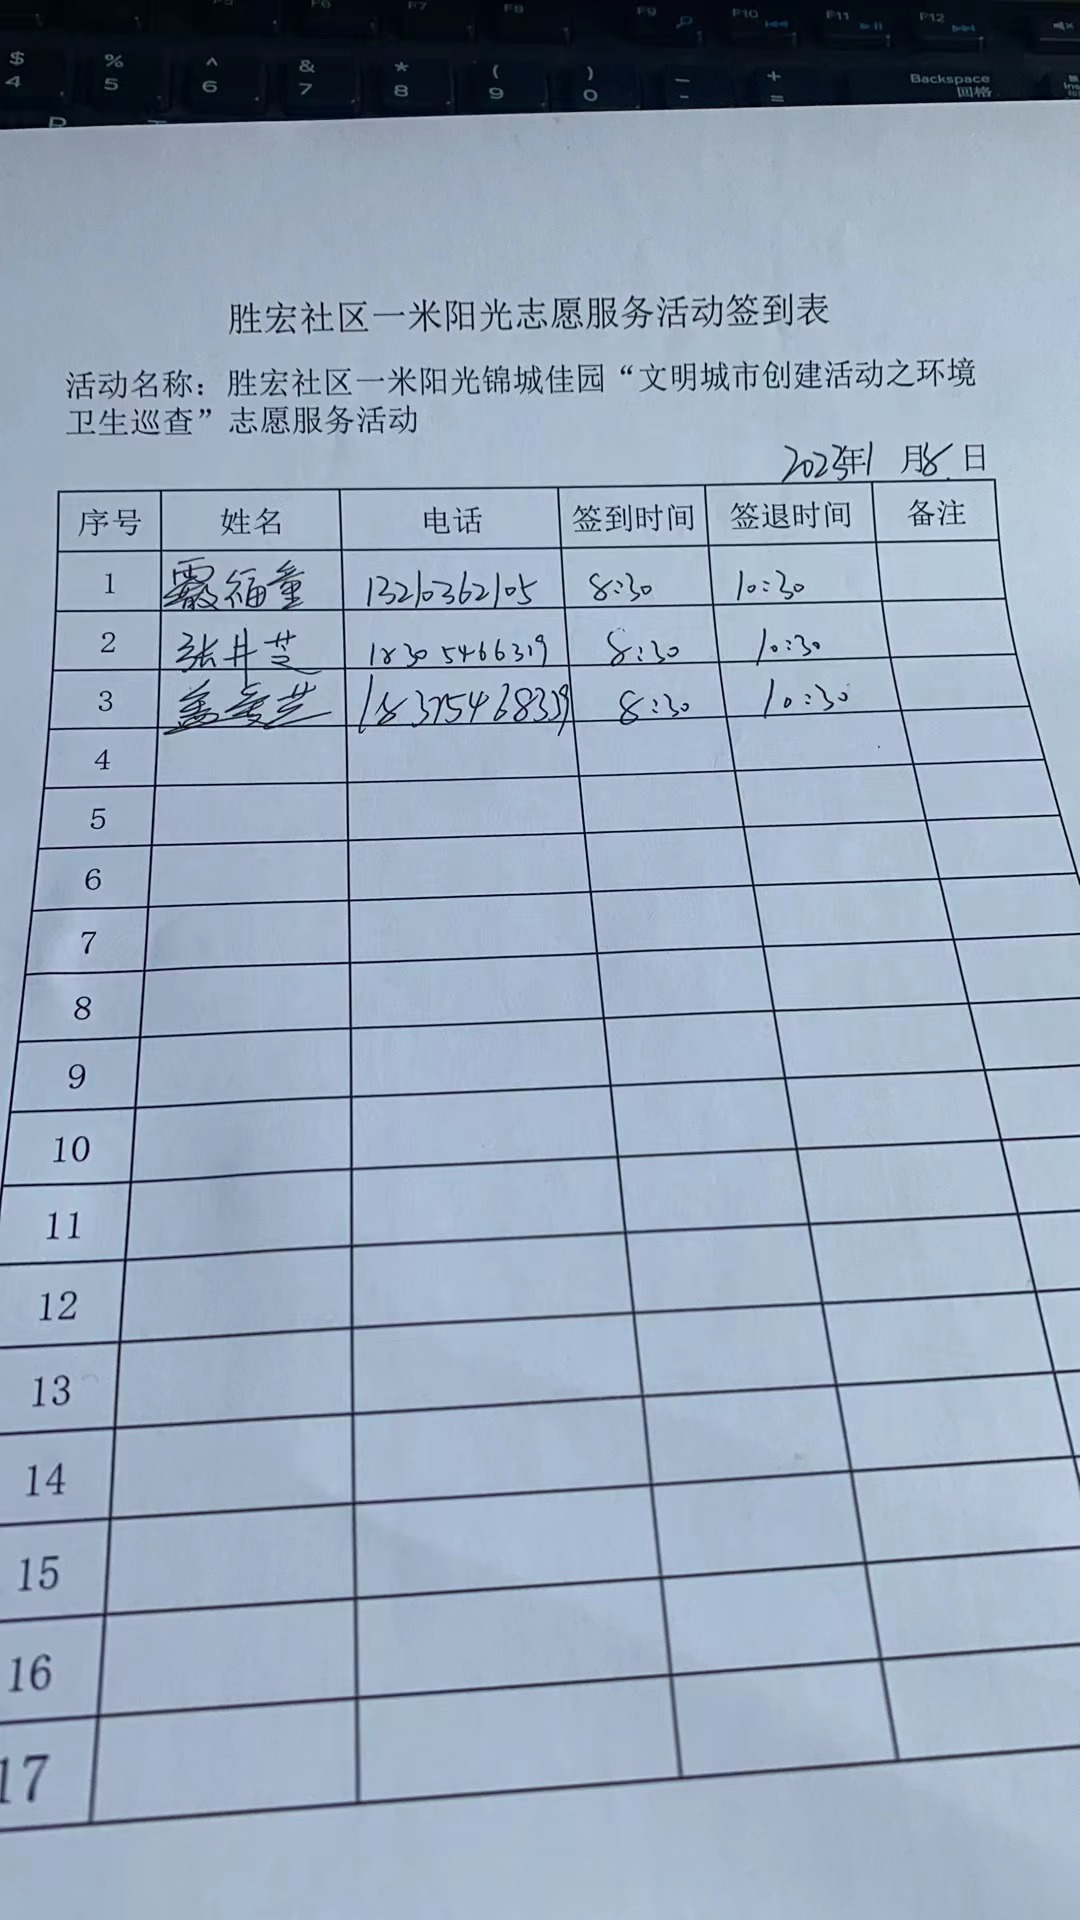 $ % ^ & * ( ) — +
4 5 6 7 8 9 0 - = Backspace 回格
F6 F7 F8 F9 F10 F11 F12
胜宏社区一米阳光志愿服务活动签到表
活动名称：胜宏社区一米阳光锦城佳园“文明城市创建活动之环境
卫生巡查”志愿服务活动
2023年1 月8 日
序号 姓名 电话 签到时间 签退时间 备注
1 福童 13210362105 8:30 10:30
2 张井芝 18305466319 8:30 10:30
3 盖爱芝 8:30 10:30
4
5
6
7
8
9
10
11
12
13
14
15
16
17